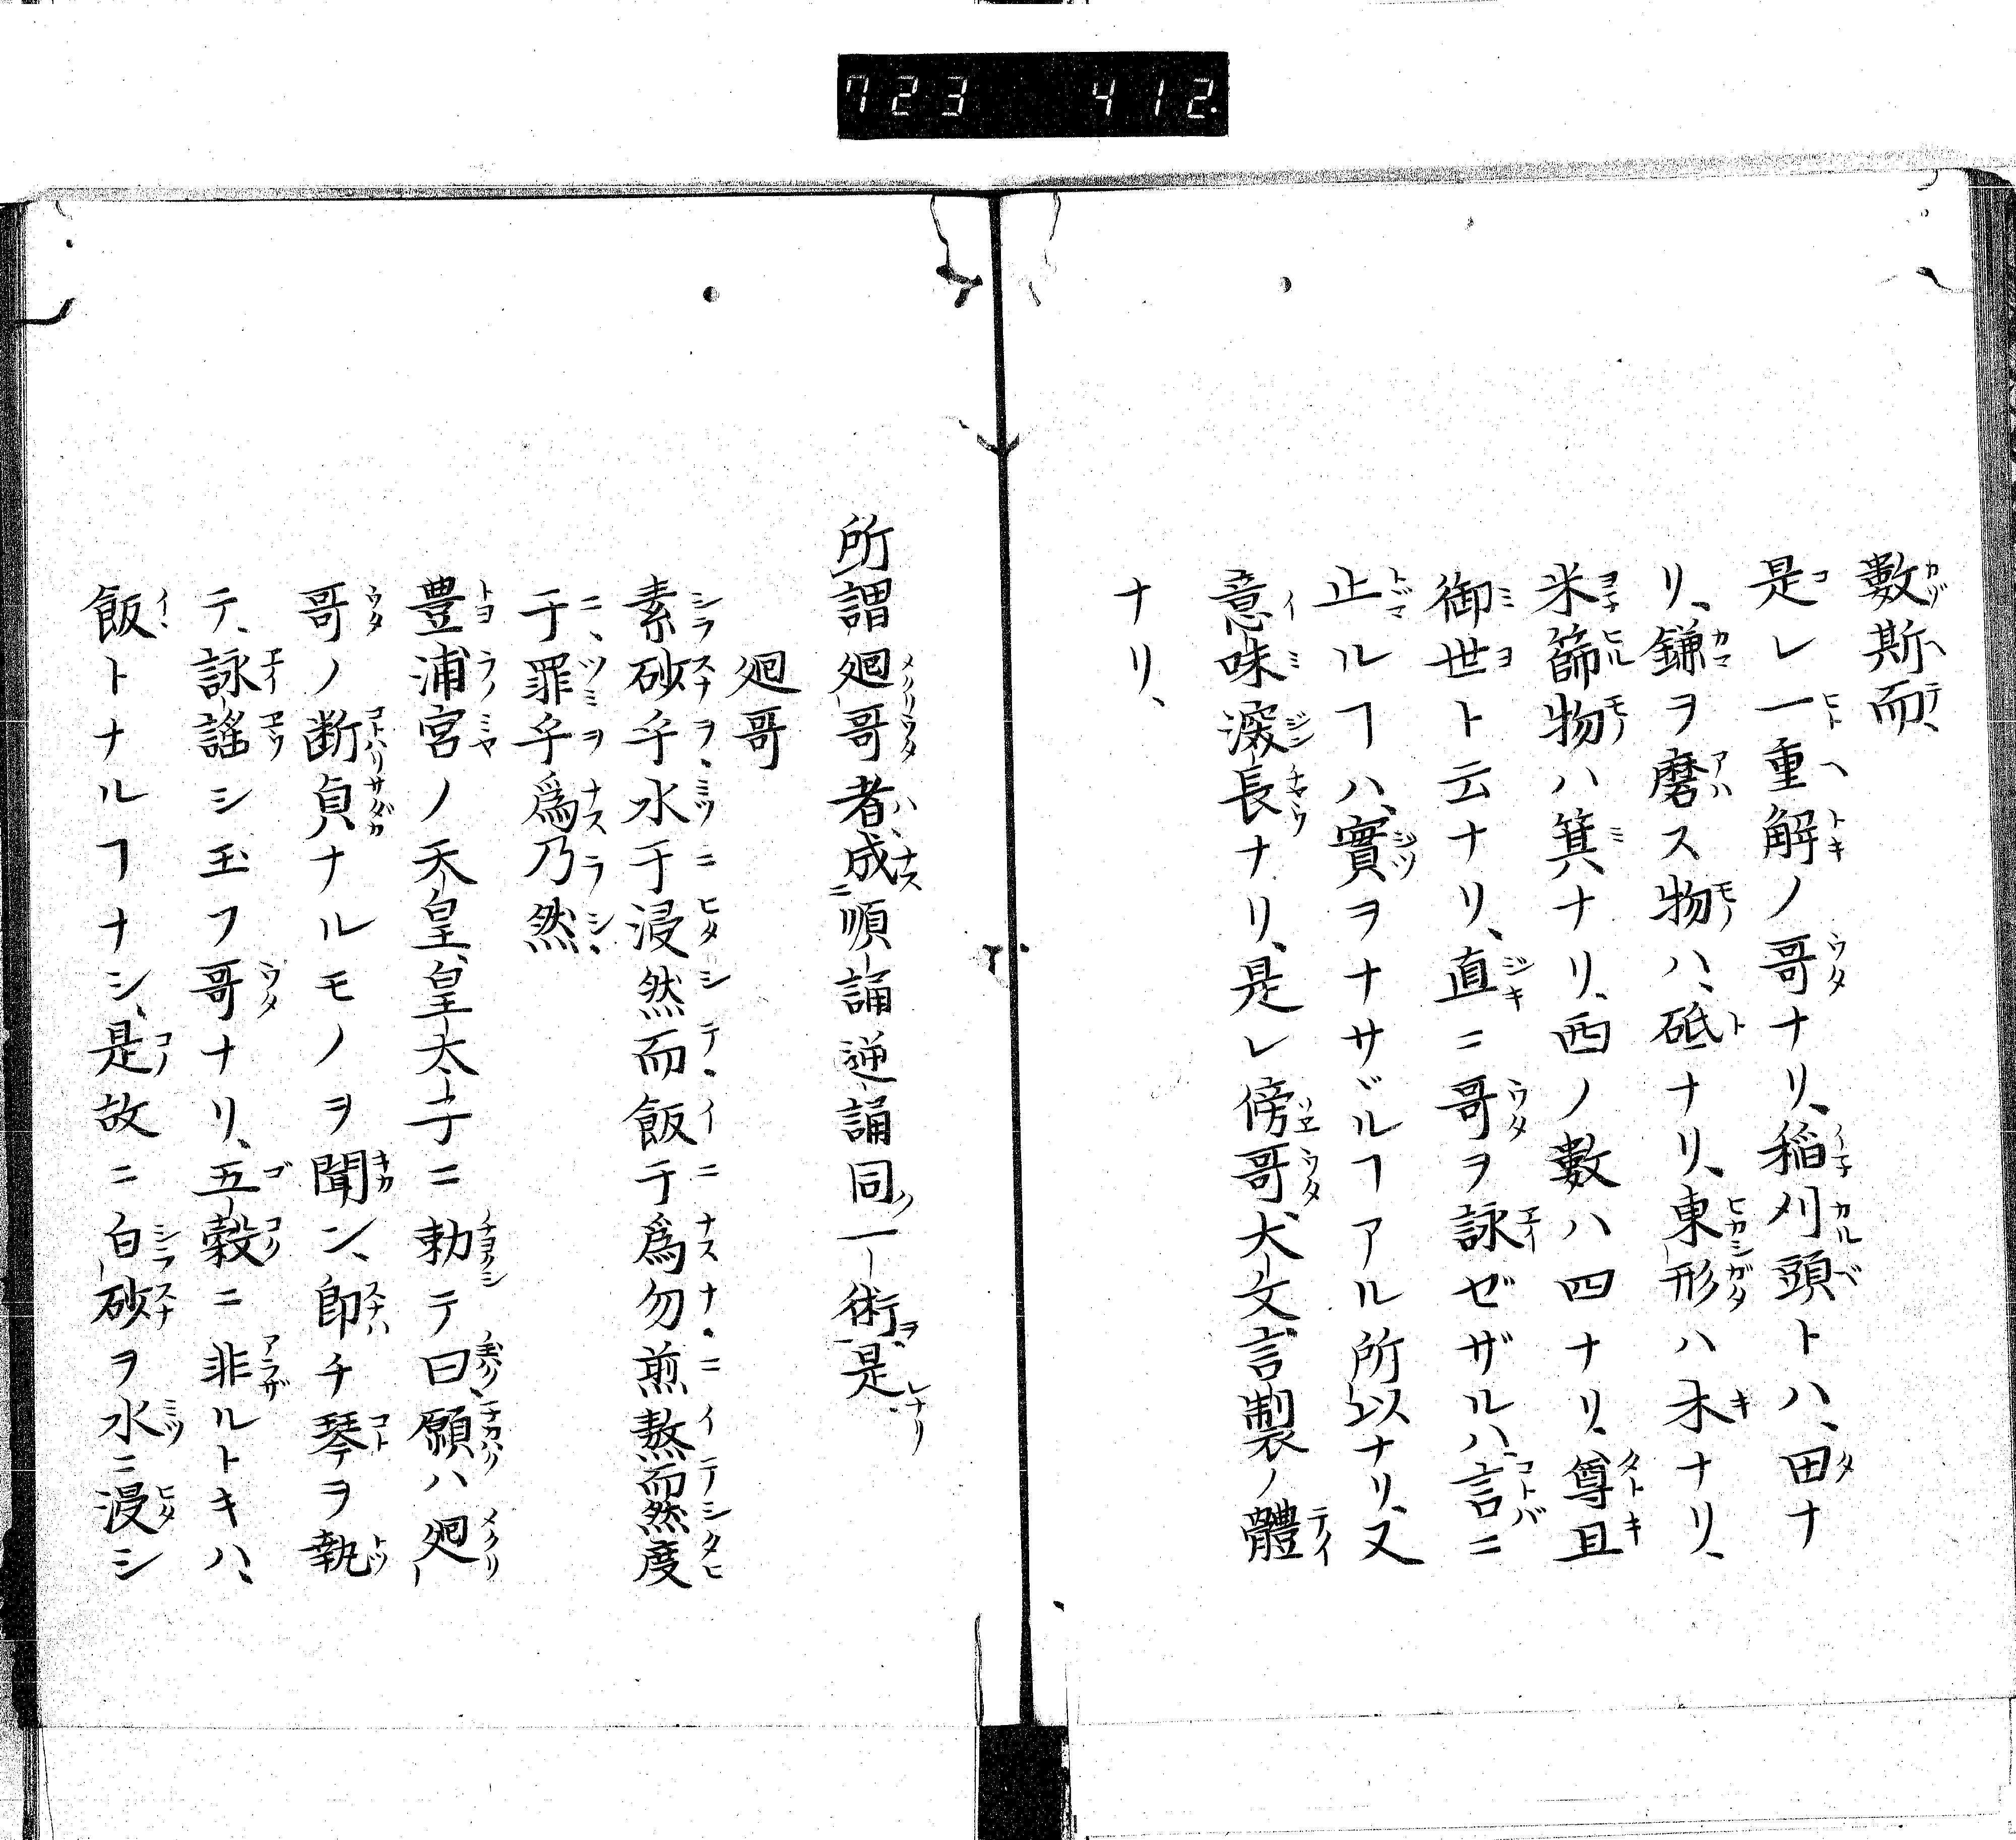 723 412.
數斯而
是レ一重解ノ哥ナリ、稲刈頭トハ、田ナ
リ、鎌ヲ磨ス物ハ、砥ナリ、東形ハ木ナリ、
米篩物ハ箕ナリ、西ノ數ハ四ナリ、尊且
御世ト云ナリ、直ニ哥ヲ詠ゼザルハ言ニ
止ルヿハ、實ヲナサヾルヿアル所以ナリ、又
意味深長ナリ、是レ傍哥、犬文、言製ノ體
ナリ、
所謂廻哥者成順誦逆誦同一術是
廻哥
素砂乎水于浸然而飯于爲勿煎熬而然度
于罪乎爲乃然
豊浦宮ノ天皇、皇太子ニ勅テ曰、願ハ廻
哥ノ断貞ナルモノヲ聞ン、即チ琴ヲ執
テ、詠謡シ玉フ哥ナリ、五穀ニ非ルトキハ、
飯トナルヿナシ、是故ニ白砂ヲ水ニ浸シ